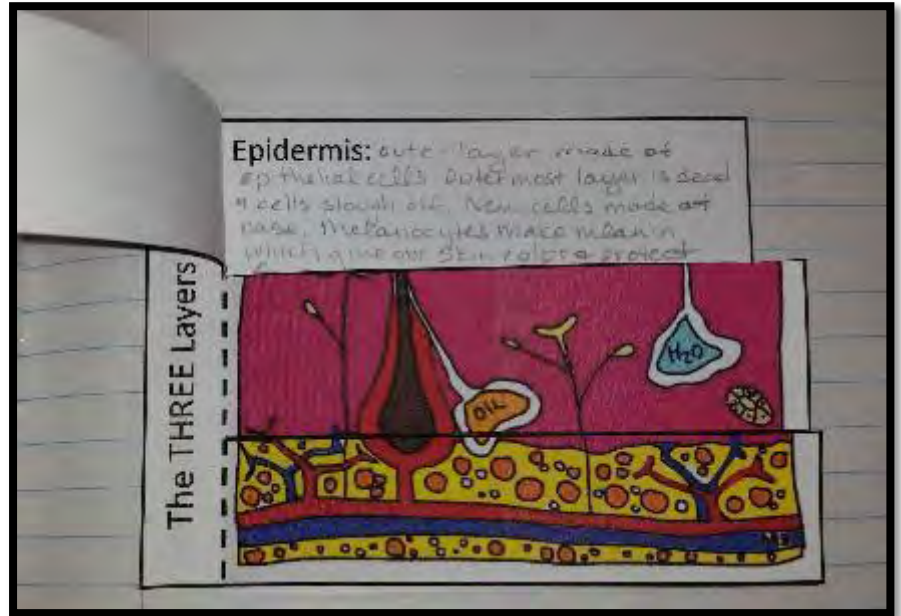 Epidermis: oute layer made of
epithelial cells Outermost layer is dead
cells slough off. New cells made at
base. Melanocytes make melanin
which give our skin color & protect
The THREE Layers
OIL
H₂O